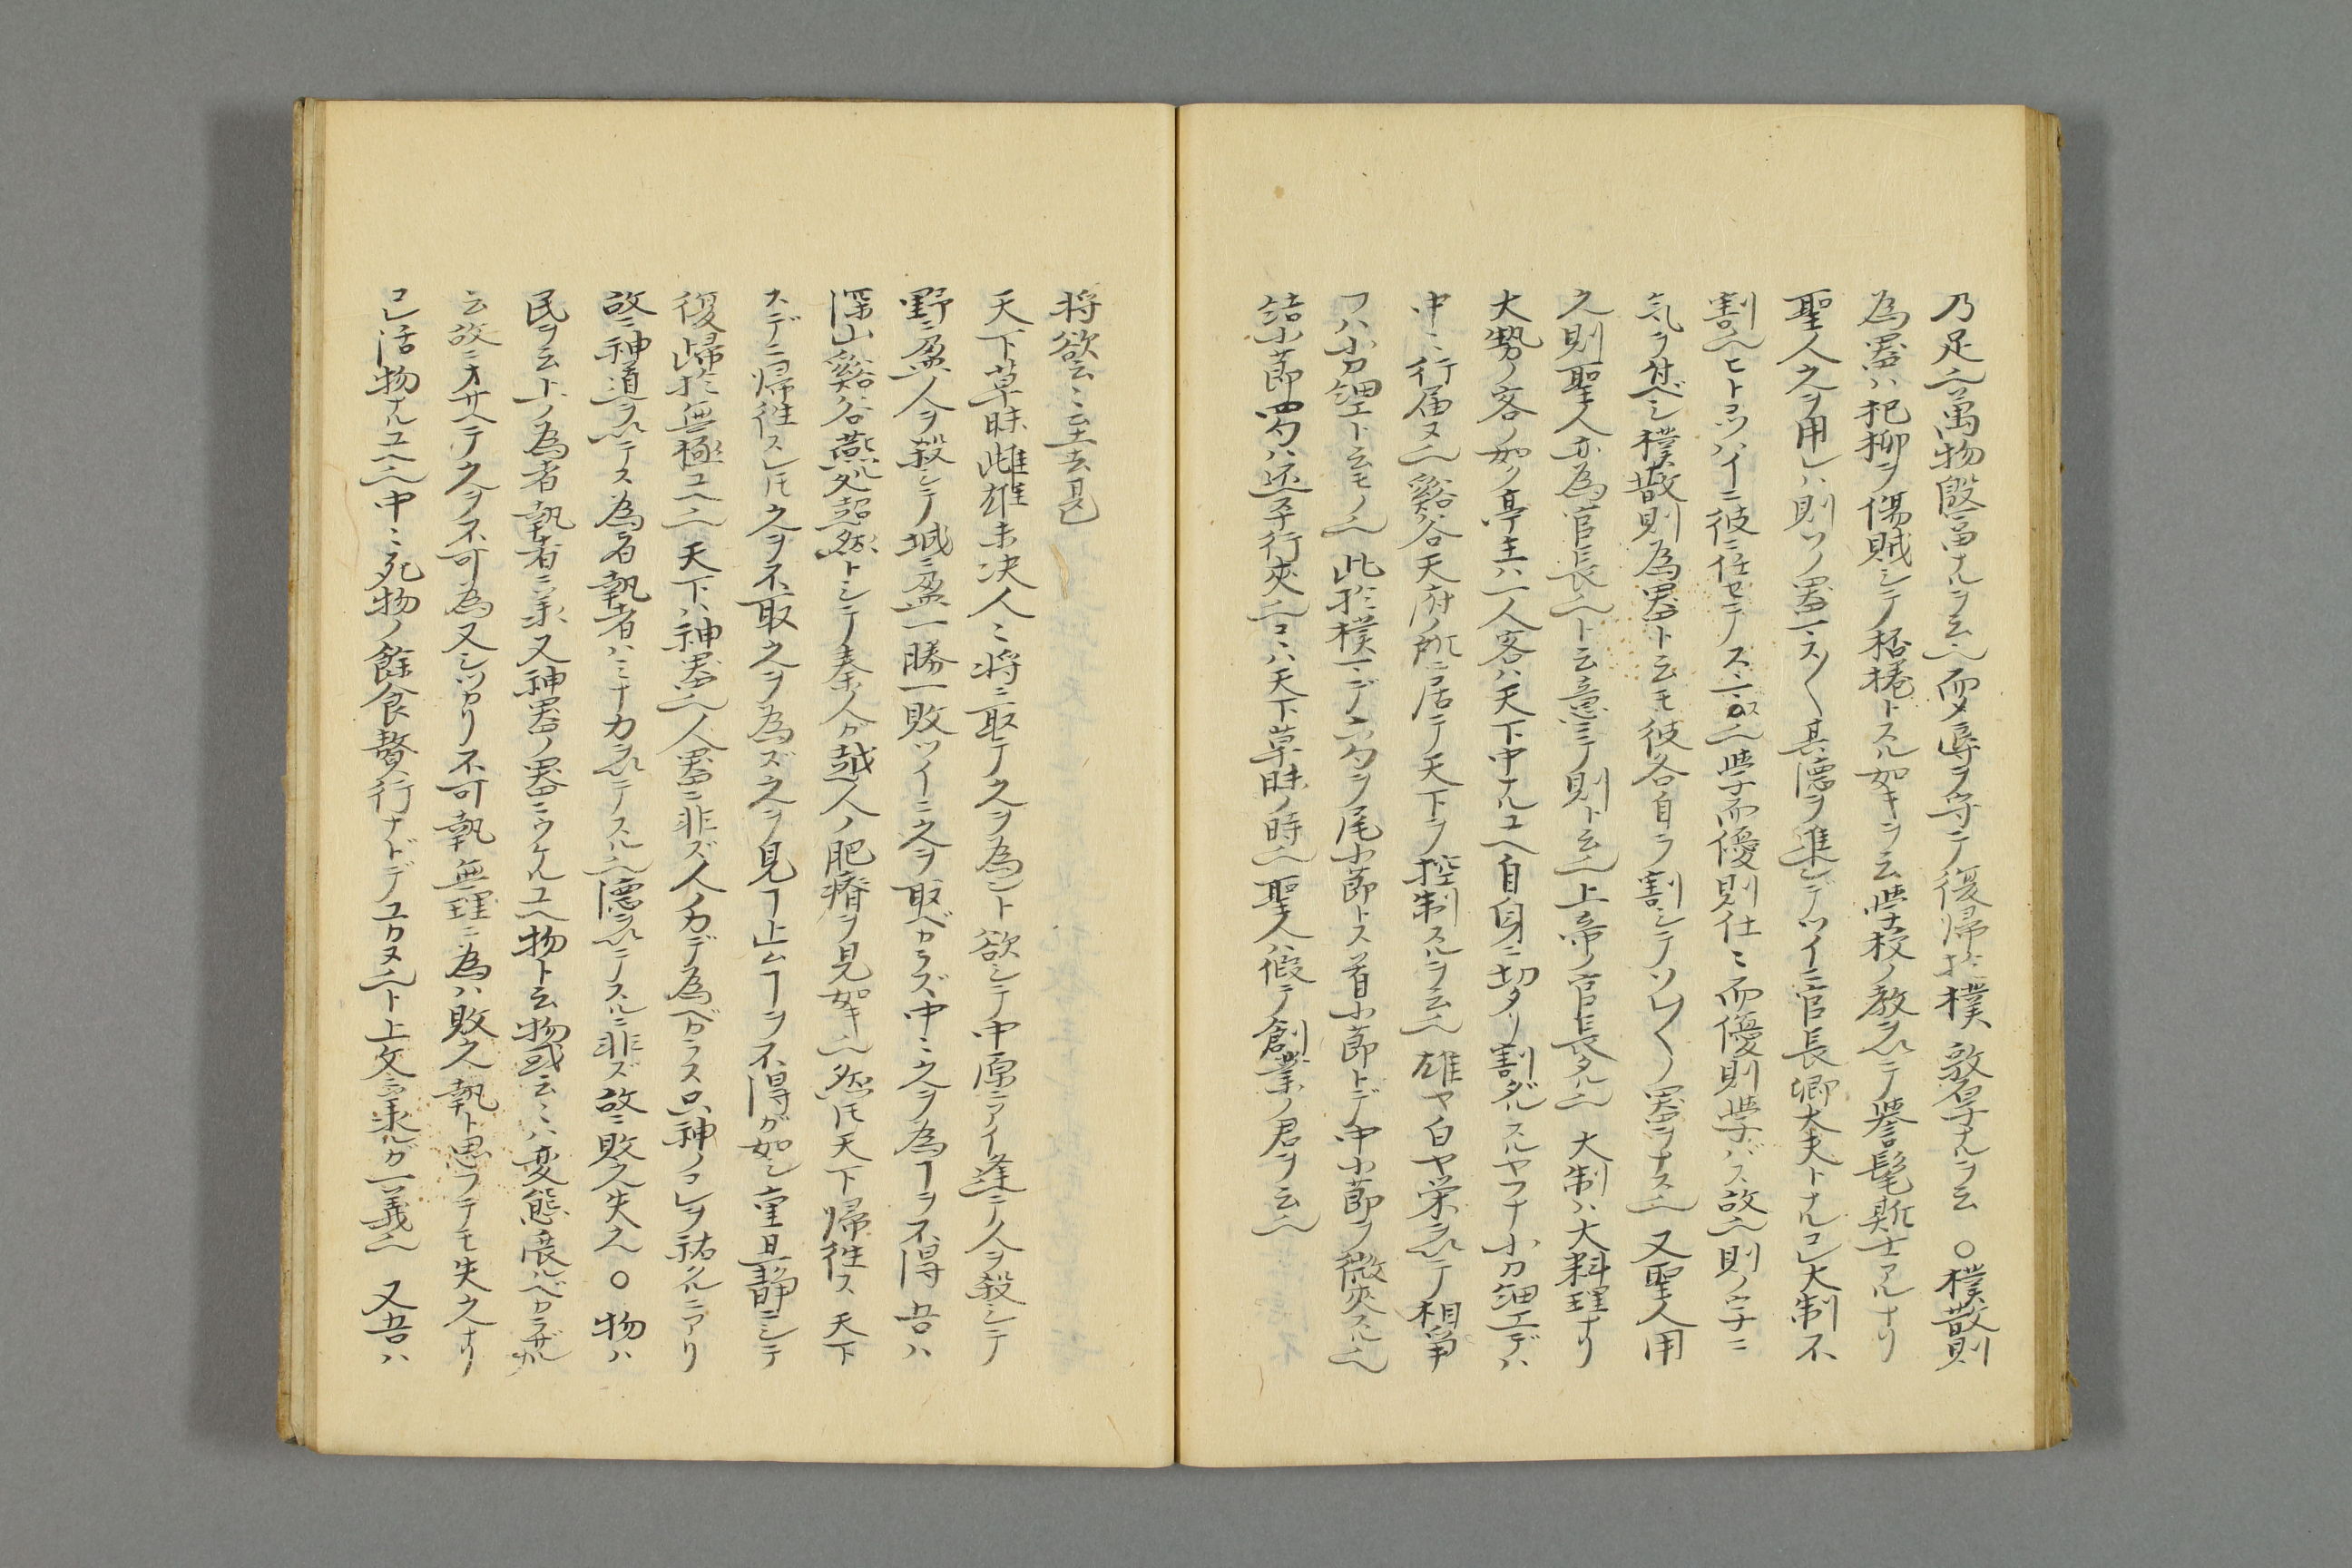 乃足ハ萬物殷富ナルヲ云也而〆辱ヲ守テ復帰於樸敦厚ナルヲ云 ○樸散則
為器ハ杞柳ヲ傷賊シテ桮棬トスル如キヲ云学校ノ教ヲ以テ誉髦斯士アルナリ
聖人之ヲ用レハ則ソノ器一ス〱其徳ヲ進シデツイニ官長卿大夫トナルコレ大制不
割也ヒトコツハイニ彼ニ任セテス言ハ学而優則仕ミ而優則学バス故也則ノ字ニ
気ヲ付ベシ樸散則為器ト云モ彼各自ラ割シテソレ〱ノ器ヲナス也 又聖人用
之則聖人亦為官長也ト云意ニテ則ト云也上帝ノ官長タル也 大制ハ大料理ナリ
大勢ノ客ノ如ク亭主ハ一人客ハ天下中ナルユヘ自身ニ切タリ割ダルスルヤフナ小刀細工デハ
中ミ行届ヌ也谿谷天府ノ所ニ居テ天下ヲ控制スルヲ云也 雄ヤ白ヤ栄ヲ以テ相争
フハ小刀細工ト云モノ也 此於樸マデ六句ヲ尾小節トス首小節トデ中小節ヲ微夾スル也
結小節四句ハ还平行夾也コヽハ天下草昧ノ時也聖人ハ假テ創業ノ君ヲ云也
将欲云ミ至去甚
天下草昧雌雄未決人ミ将ニ取テ之ヲ為ント欲シテ中原ニアイ逢テ人ヲ殺シテ
野ニ盈人ヲ殺シテ城ニ盈一勝一敗ツイニ之ヲ取ベカラズ中ミ之ヲ為ヿヲ不得 吾ハ
深山谿谷燕処超然トシテ秦ノ人ガ越人ノ肥瘠ヲ見如キ也然𪜈天下帰往ス 天下
スデニ帰往スレ𪜈之ヲ不取之ヲ為ズ之ヲ見ヿ止ムヿヲ不得ガ如シ重且静ニシテ
復帰於無極ユヘ也天下ハ神器也人器ニ非ズ人ノ力デ為ベカラス只神ノコレヲ祐クルニアリ
故ニ神道ヲ以テス為者執者ハミナ力ヲ以テノスル也徳ヲ以テスルニ非ズ故ニ敗之失之 ○物ハ
民ヲ云下ノ為者執者ニ承又神器ノ器ニウケルユヘ物ト云物或云ミハ変態扆ルベカラザル
云故ニオサヘテ之ヲ不可為又シツカリ不可執無理ニ為ハ敗之執ト思フテモ失之ナリ
コレ活物ナルユヘ也中ミ死物ノ餘食贅行ナドデユカヌ也ト上文ニ承ルガ一義也 又吾ハ